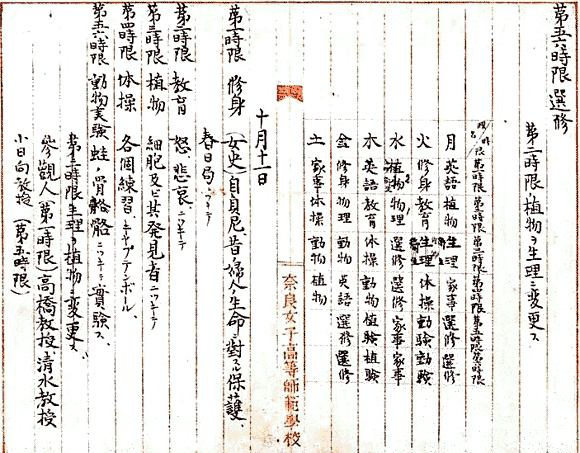 第五六時限 選修
第二時限、植物ヲ生理ニ変更ス
第一時限 第二時限 第三時限 第四時限 第五時限 第六時限
月 英語 植物 生理 家事 選修 選修
火 修身 教育 生理 体操 動験 動験
水 植物 物理 選修 選修 家事 家事
木 英語 教育 体操 動物 植験 植験
金 修身 物理 動物 英語 選修 選修
土 家事 体操 動物 植物
奈良女子高等師範学校
十月十一日
第一時限 修身 (女史)自貞尼、昔ノ婦人ノ生命ニ対スル保護、
春日局、ツキテ
第二時限 教育 怒、悲哀、ニツキテ
第三時限 植物 細胞及ヒ其発見者ニツキテ
第四時限 体操 各個練習、キャプテンボール、
第五六時限 動物実験 蛙ノ骨骼ニツキテ実験ス、
第三時限生理ヲ植物ニ変更ス
参観人(第一時限)高橋教授 清水教授
小日向教授(第五時限)